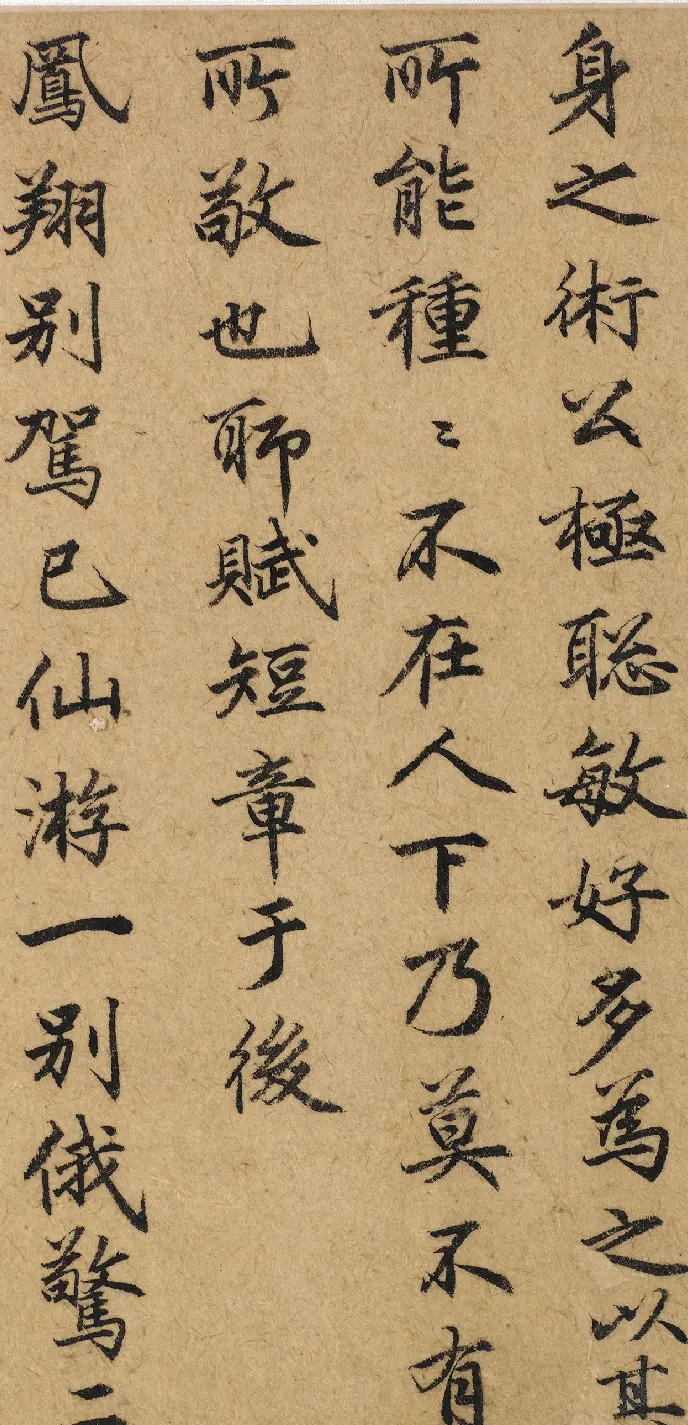 身之術公極聡敏好多為之以其
所能種〻不在人下乃莫不有
所敬也聊賦短章于後
鳳翔别駕已仙游一别俄驚二